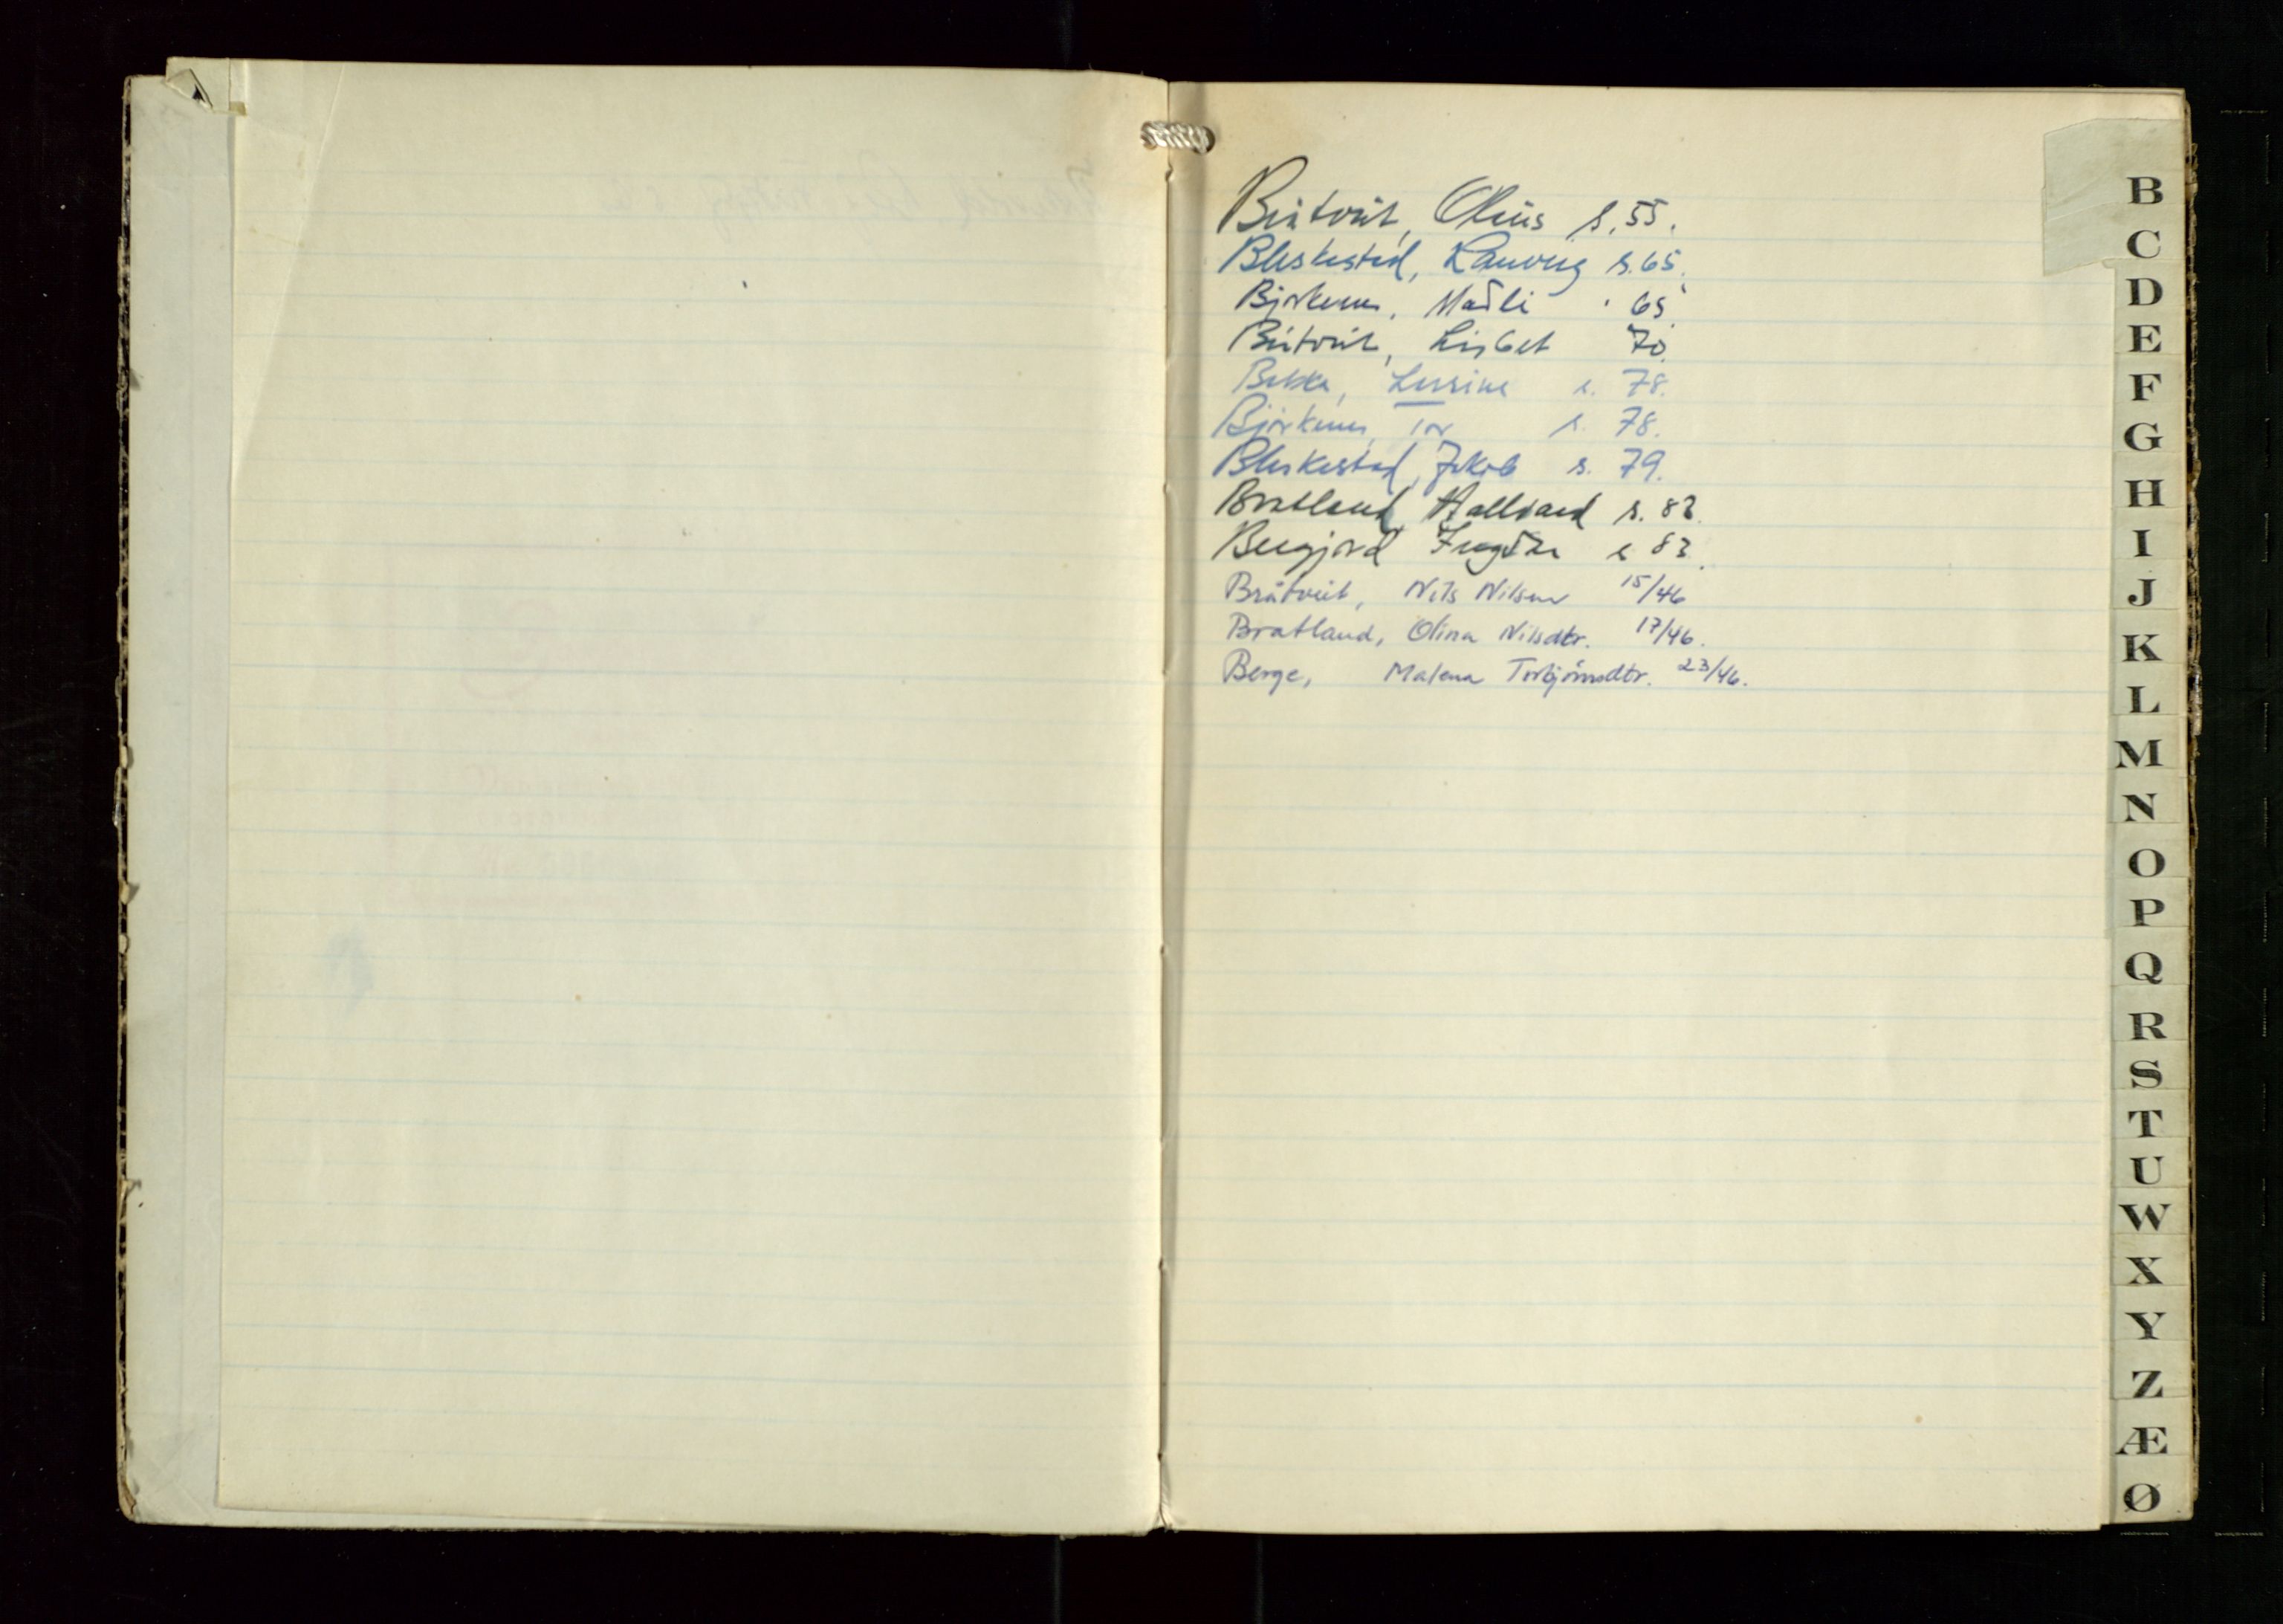 Bråtveit, Olius s. 55.
Bleskestad, Lauveig s. 65.
Bjørkenes, Maʼli 65
Bråtveit, Lisbet 70.
Bakka, Lussine s. 78.
Bjørkenes, Tor s. 78.
Bleskestad, Jakob s. 79.
Bratland Hallvard s. 82.
Bergjord s 83.
Bråtveit, Nils Nilsen 15/46
Bratland, Olina Nilsdtr. 17/46.
Berge, Malena Torbjørnsdtr. 23/46.
B
C
D
E
F
G
H
I
J
K
L
M
N
O
P
Q
R
S
T
U
W
X
Y
Z
Æ
Ø